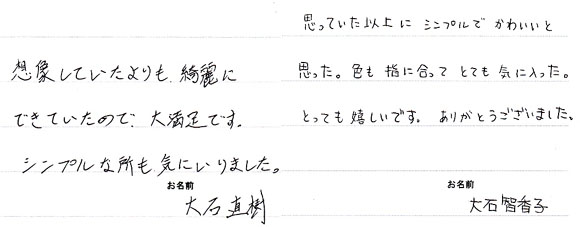 想象していたよりも、綺麗に
できていたので、大満足です。
シンプルな所も気にいりました。
お名前
大石直樹
思っていた以上に シンプルで かわいいと
思った。色も 指に合って とても 気に入った。
とっても 嬉しいです。 ありがとうございました。
お名前
大石智香子